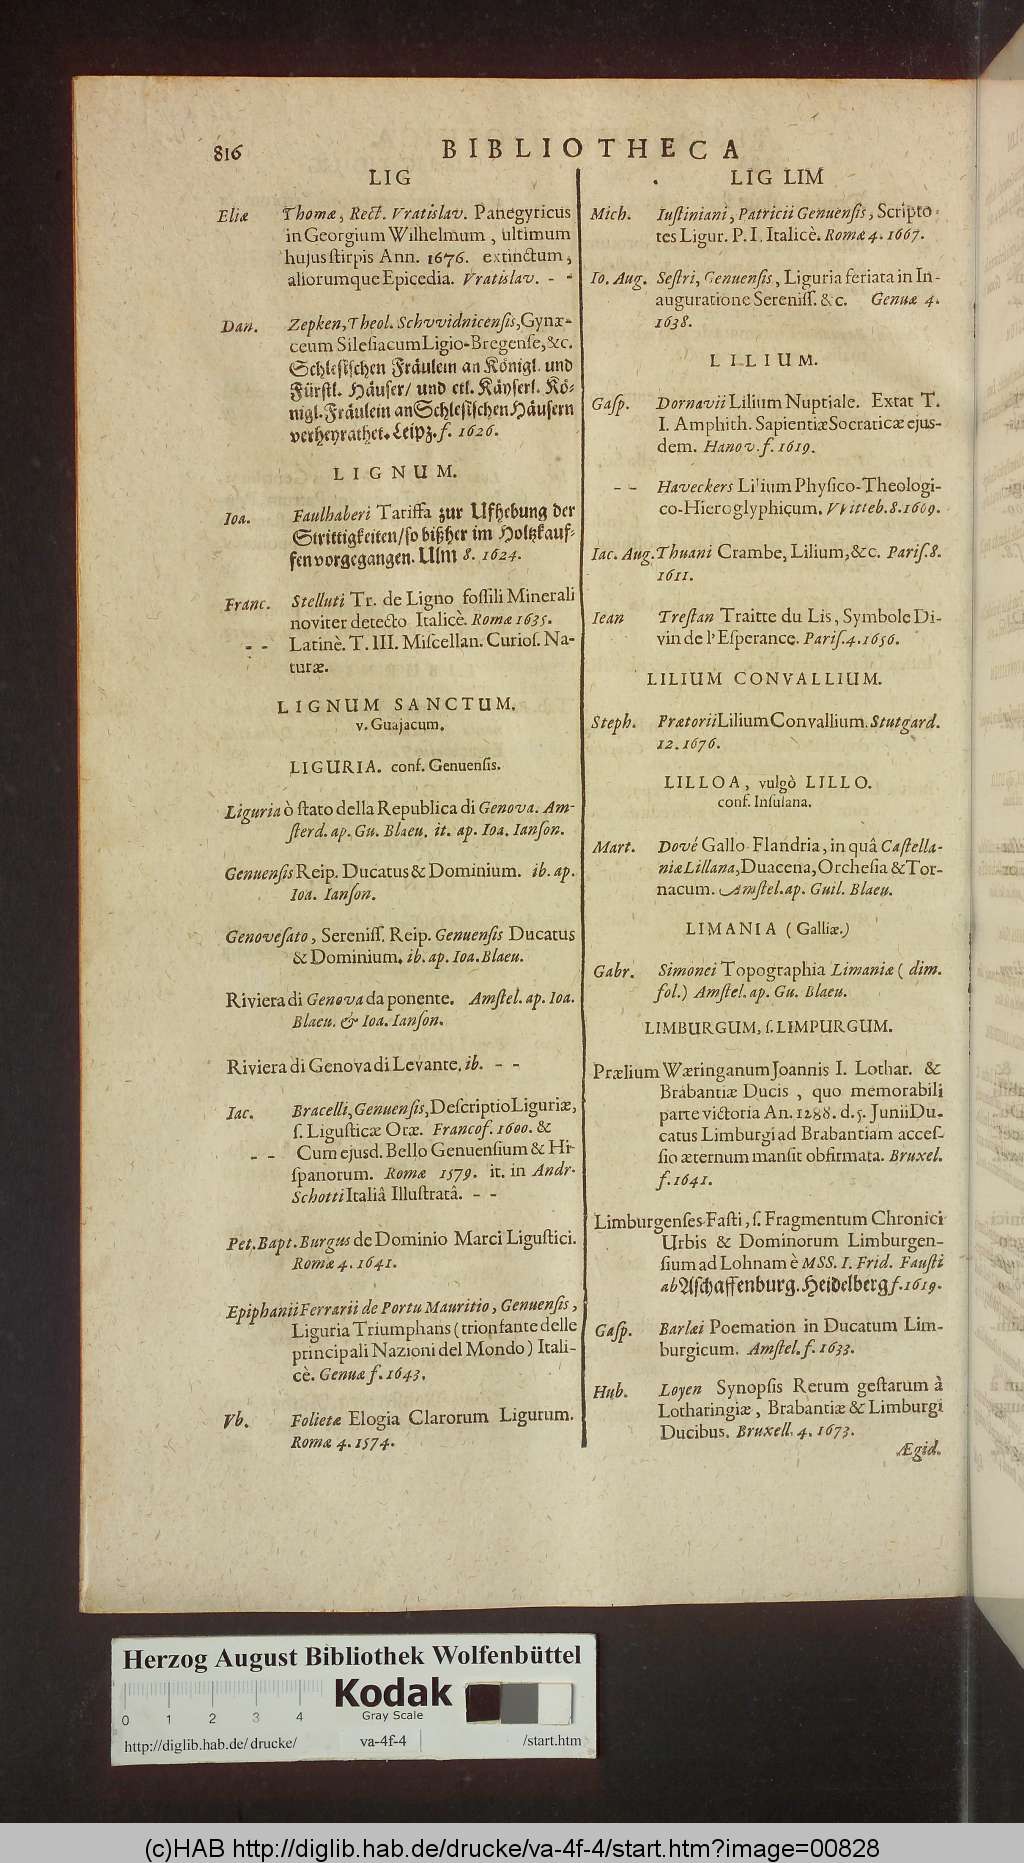 816
BIBLIOTHECA
LIG
Eliæ Thomæ, Rect. Vratislav. Panegyricus
in Georgium Wilhelmum, ultimum
hujus ſtirpis Ann. 1676. extinctum,
aliorumque Epicedia. Vratislav. - -
Dan. Zepken, Theol. Schvvidnicenſis, Gynæ-
ceum Sileſiacum Ligio-Bregenſe, &c.
Schleſiſchen Fräulein an Königl. und
Fürſtl. Häuſer/ und etl. Käyſerl. Kö-
nigl. Fräulein an Schleſiſchen Häuſern
verheyrathet. Leipz. f. 1626.
LIGNUM.
Ioa. Faulhaberi Tariffa zur Ufhebung der
Strittigkeiten/ ſo bißher im Holtzkauf-
fen vorgegangen. Ulm 8. 1624.
Franc. Stelluti Tr. de Ligno foſſili Minerali
noviter detecto Italicè. Romæ 1635.
- - Latinè. T. III. Miſcellan. Curioſ. Na-
turæ.
LIGNUM SANCTUM.
v. Guajacum.
LIGURIA. conf. Genuenſis.
Liguria ò ſtato della Republica di Genova. Am-
ſterd. ap. Gu. Blaeu. it. ap. Ioa. Ianſon.
Genuenſis Reip. Ducatus & Dominium. ib. ap.
Ioa. Ianſon.
Genoveſato, Sereniſſ. Reip. Genuenſis Ducatus
& Dominium. ib. ap. Ioa. Blaeu.
Riviera di Genova da ponente. Amſtel. ap. Ioa.
Blaeu. & Ioa. Ianſon.
Riviera di Genova di Levante. ib. - -
Iac. Bracelli, Genuenſis, Deſcriptio Liguriæ,
ſ. Liguſticæ Oræ. Francof. 1600. &
- - Cum ejusd. Bello Genuenſium & Hi-
ſpanorum. Romæ 1579. it. in Andr.
Schotti Italiâ Illuſtratâ. - -
Pet. Bapt. Burgus de Dominio Marci Liguſtici.
Romæ 4. 1641.
Epiphanii Ferrarii de Portu Mauritio, Genuenſis,
Liguria Triumphans (trionfante delle
principali Nazioni del Mondo) Itali-
cè. Genuæ f. 1643.
Vb. Folietæ Elogia Clarorum Ligurum.
Romæ 4. 1574.
LIG LIM
Mich. Iuſtiniani, Patricii Genuenſis, Scripto-
res Ligur. P. I. Italicè. Romæ 4. 1667.
Io. Aug. Seſtri, Genuenſis, Liguria feriata in In-
auguratione Sereniſſ. &c. Genuæ 4.
1638.
LILIUM.
Gaſp. Dornavii Lilium Nuptiale. Extat T.
I. Amphith. Sapientiæ Socraticæ ejus-
dem. Hanov. f. 1619.
- - Haveckers Lilium Phyſico-Theologi-
co-Hieroglyphicum. VVitteb. 8. 1609.
Iac. Aug. Thuani Crambe, Lilium, &c. Pariſ. 8.
1611.
Iean Treſtan Traitte du Lis, Symbole Di-
vin de l'Eſperance. Pariſ. 4. 1656.
LILIUM CONVALLIUM.
Steph. Prætorii Lilium Convallium. Stutgard.
12. 1676.
LILLOA, vulgò LILLO.
conf. Inſulana.
Mart. Dové Gallo-Flandria, in quâ Caſtella-
niæ Lillana, Duacena, Orcheſia & Tor-
nacum. Amſtel. ap. Guil. Blaeu.
LIMANIA (Galliæ.)
Gabr. Simonei Topographia Limaniæ (dim.
fol.) Amſtel. ap. Gu. Blaeu.
LIMBURGUM, ſ. LIMPURGUM.
Prælium Wæringanum Joannis I. Lothar. &
Brabantiæ Ducis, quo memorabili
parte victoria An. 1288. d. 5. Junii Du-
catus Limburgi ad Brabantiam acceſ-
ſio æternum manſit obfirmata. Bruxel.
f. 1641.
Limburgenſes Faſti, ſ. Fragmentum Chronici
Urbis & Dominorum Limburgen-
ſium ad Lohnam è MSS. I. Frid. Fauſti
ab Aſchaffenburg. Heidelberg f. 1619.
Gaſp. Barlæi Poemation in Ducatum Lim-
burgicum. Amſtel. f. 1633.
Hub. Loyen Synopſis Rerum geſtarum à
Lotharingiæ, Brabantiæ & Limburgi
Ducibus. Bruxell. 4. 1673.
Ægid.
Herzog August Bibliothek Wolfenbüttel
Kodak
Gray Scale
0 1 2 3 4
http://diglib.hab.de/drucke/ va-4f-4 /start.htm
(c)HAB http://diglib.hab.de/drucke/va-4f-4/start.htm?image=00828